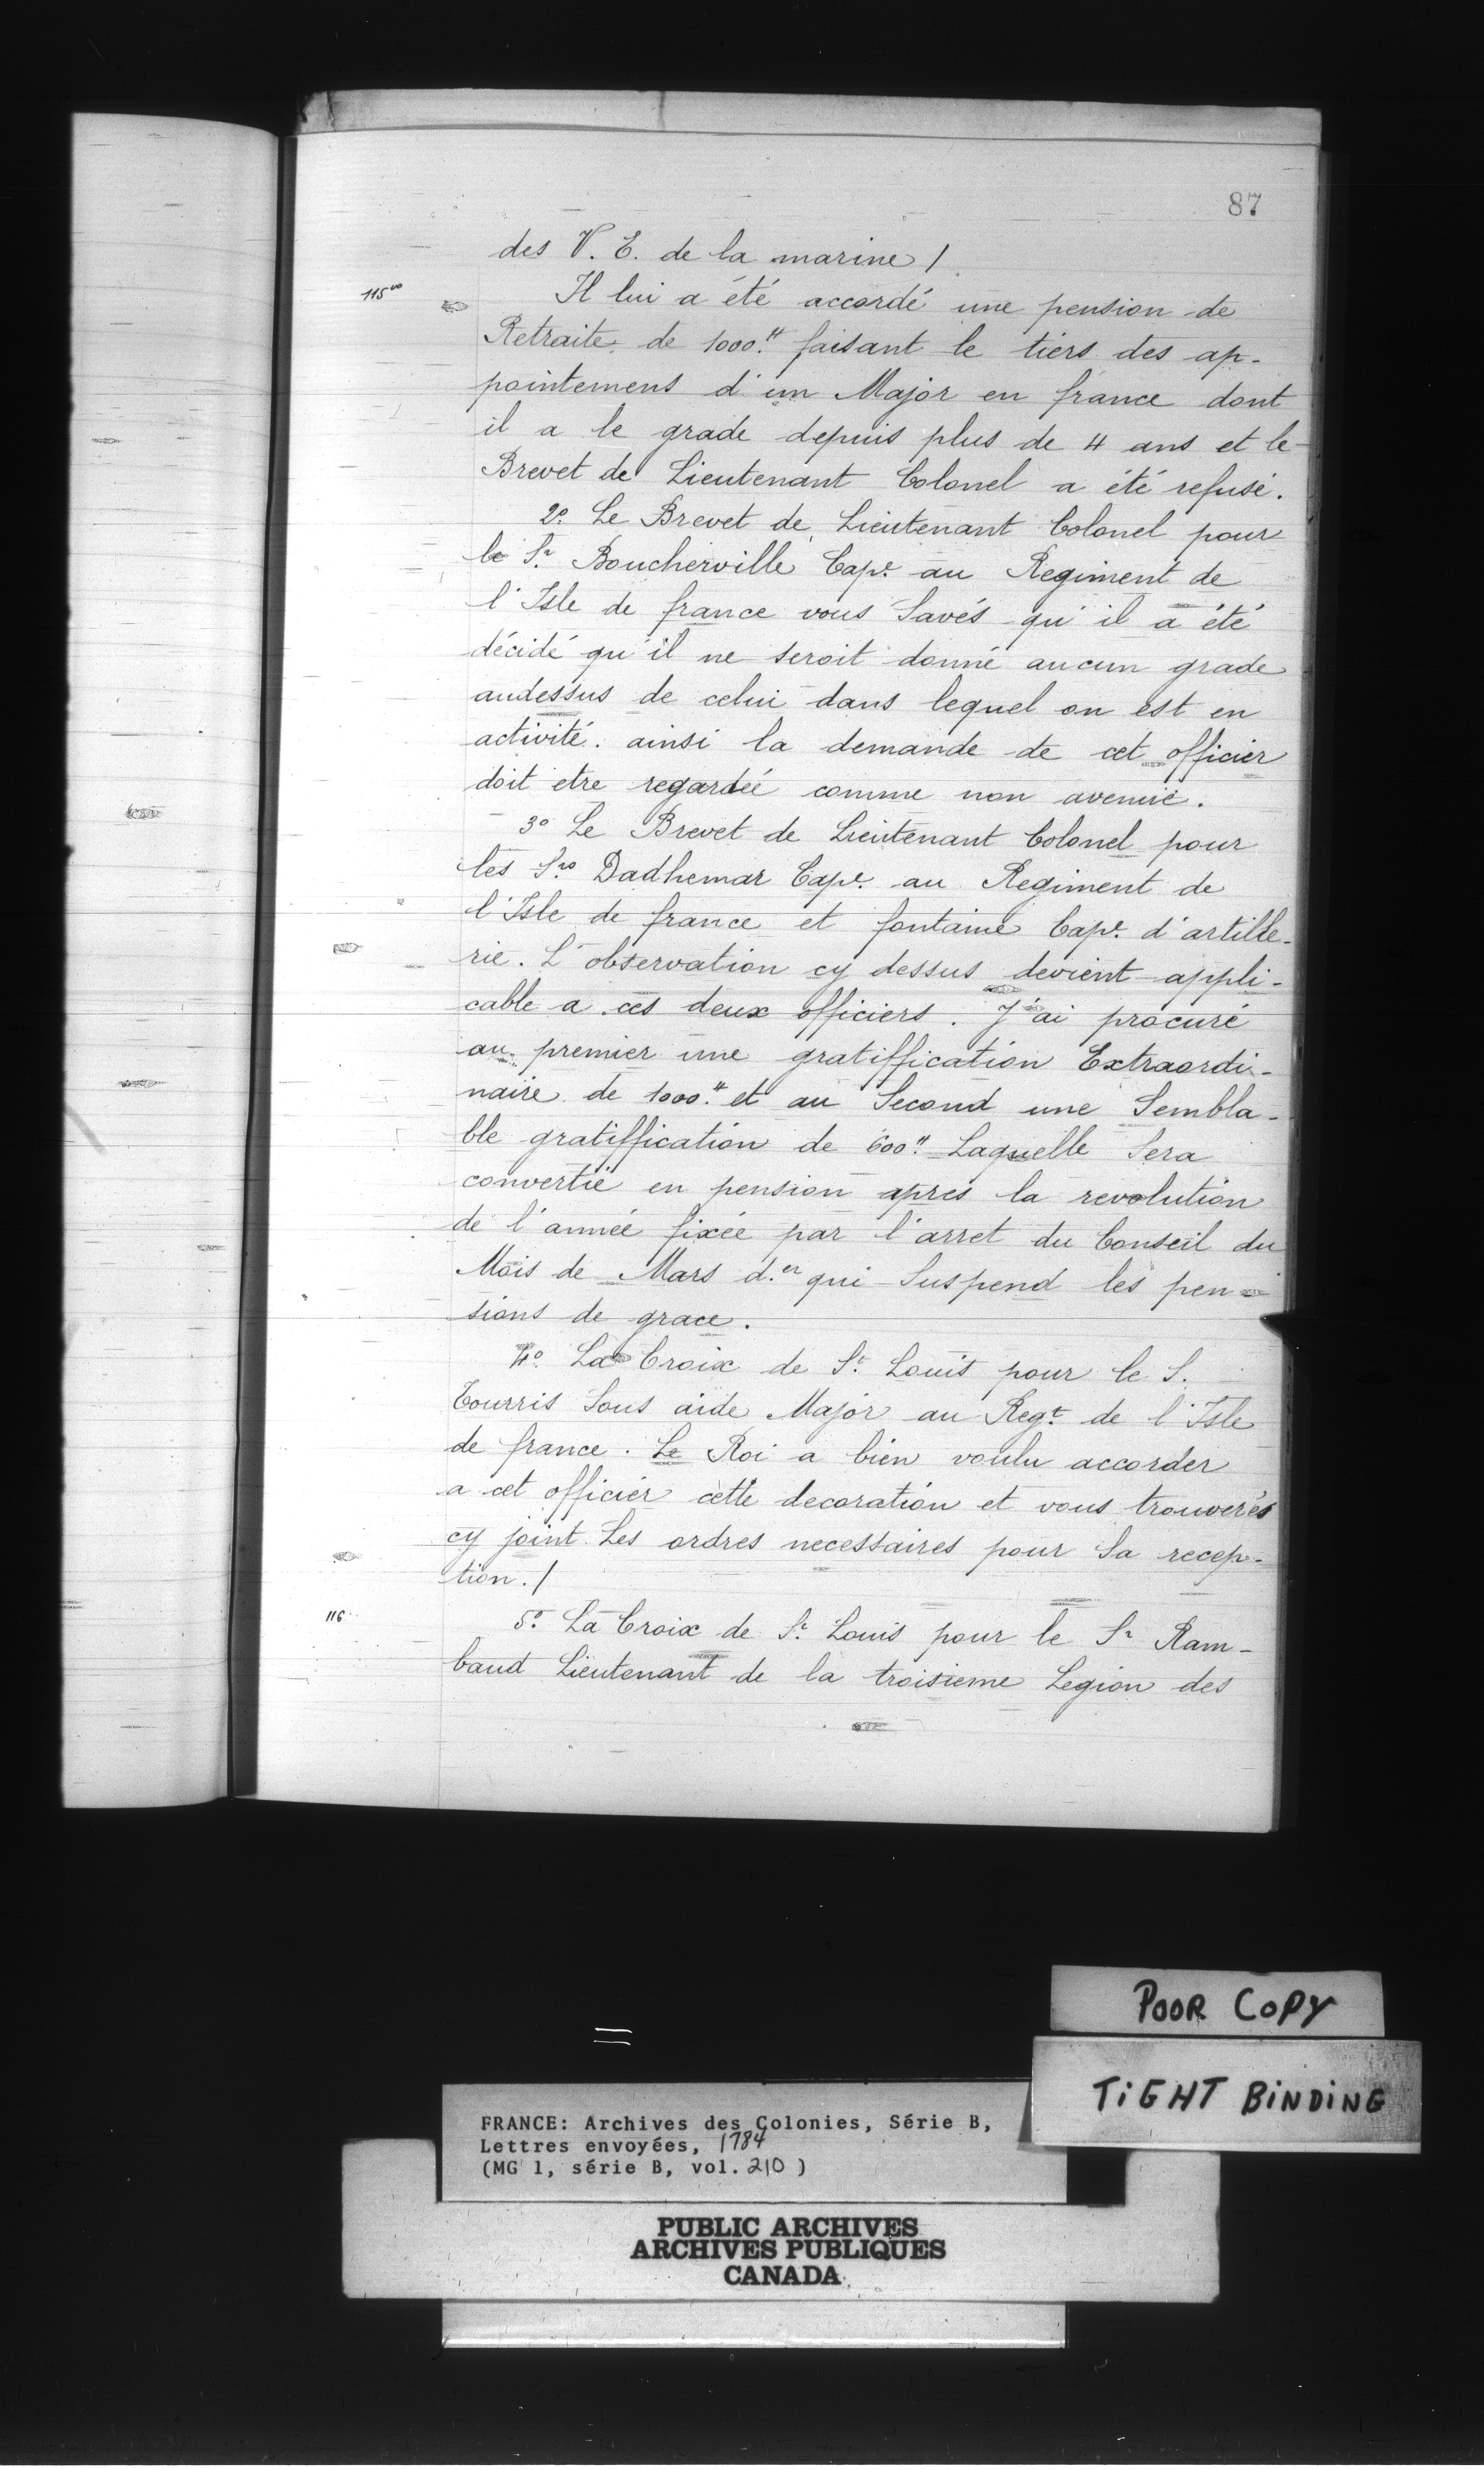 87
des V. E. de la marine /
115 vo
Il lui a été accordé une pension de
Retraite de 1000.tt faisant le tiers des ap-
pointemens d'un Major en france dont
il a le grade depuis plus de 4 ans et le
Brevet de Lieutenant Colonel a été refusé.
2º Le Brevet de Lieutenant Colonel pour
le Sr. Boucherville Cape. au Regiment de
l'Isle de france vous Savés qu'il a été
décidé qu'il ne seroit donné aucun grade
audessus de celui dans lequel on est en
activité. ainsi la demande de cet officier
doit etre regardée comme non avenue.
3º Le Brevet de Lieutenant Colonel pour
les Srs Dadhemar Cape. au Regiment de
l'Isle de france et fontaine Cape. d'artille-
rie. L'observation cy dessus devient appli-
cable a ces deux officiers. J'ai procuré
au premier une gratiffication Extraordi-
naire de 1000.tt et au Second une Sembla-
ble gratiffication de 600.tt Laquelle Sera
convertie en pension apres la revolution
de l'année fixée par l'arret du Conseil du
Mois de Mars d.er qui Suspend les pen-
sions de grace.
4º. La Croix de St. Louis pour le S.
Tourris Sous aide Major au Regt. de l'Isle
de france. Le Roi a bien voulu accorder
a cet officier cette decoration et vous trouverés
cy joint Les ordres necessaires pour Sa recep-
tion. /
116
5º. La Croix de St. Louis pour le Sr Ram-
baud Lieutenant de la troisieme Legion des
POOR COPY
TIGHT BINDING
FRANCE: Archives des Colonies, Série B,
Lettres envoyées, 1784
(MG 1, série B, vol. 210 )
PUBLIC ARCHIVES
ARCHIVES PUBLIQUES
CANADA